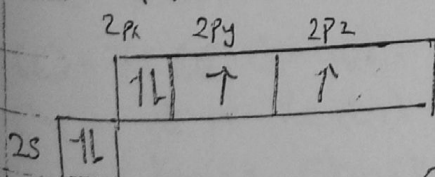 2px 2py 2pz
↿⇂ ↑ ↑
2s ↿⇂